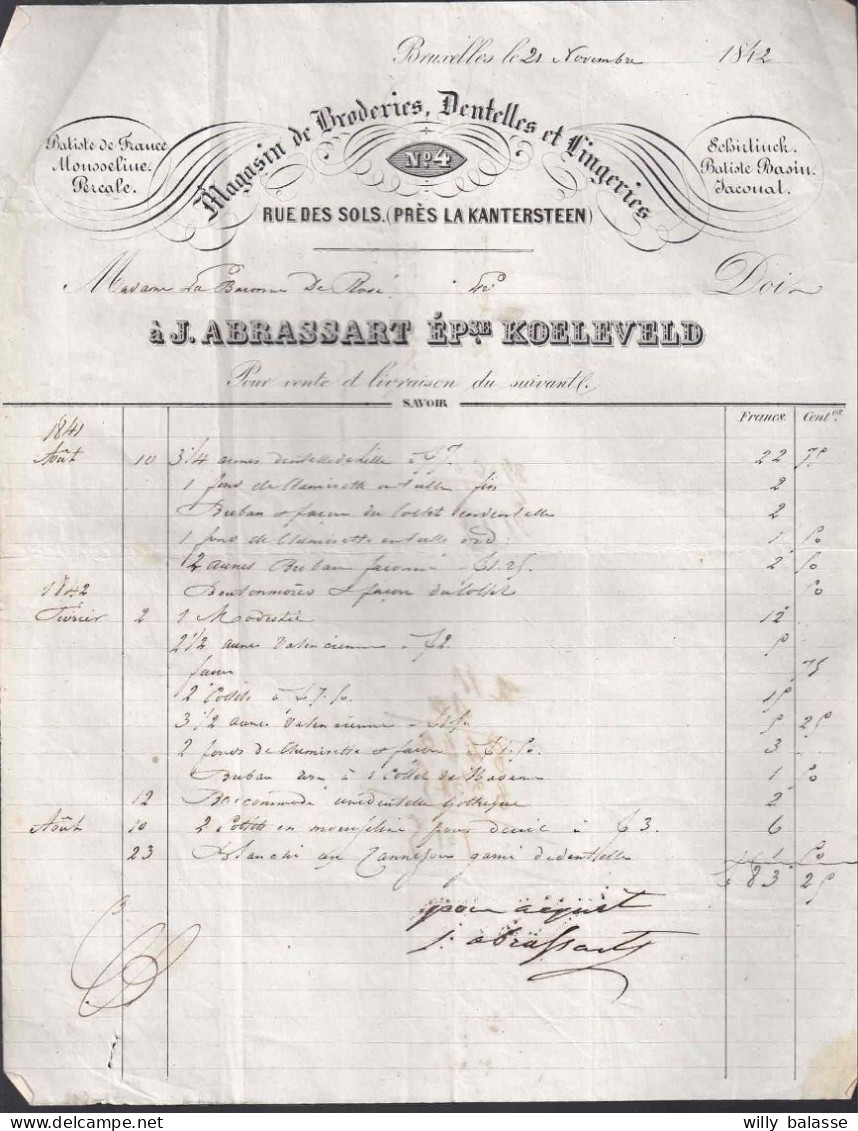 Bruxelles le 21 Novembre 1842
Magasin de Broderies, Dentelles et Lingeries
Batiste de France
Mousseline.
Percale.
No. 4
Schirtinck.
Batiste Basin.
Jaconat.
RUE DES SOLS. (PRÈS LA KANTERSTEEN)
Madame La Baronne De Doit
à J. ABRASSART ÉPSE KOELEVELD
Pour vente et livraison du suivant.
SAVOIR Francs. Centes.
1841
Août 10 3 1/4 aunes dentelle de Lille à 7. 22 75
1 fond de Chemisette en tulle fin 2
Ruban & façon du Collet en dentelle 2
1 fond de Chemisette en tulle ord: 1 50
2 aunes Ruban façonné 1.25 2 50
1842 & façon du Collet 50
Février 2 1 Modestie 12
2 1/2 aunes Valencienne à 2. 5
façon 75
2 Collets à 7.50 15
3 1/2 aunes Valencienne 1.50 5 25
2 fonds de Chemisette & façon à 1.50 3
Ruban à 1 Collet de Madame 1 50
12 Raccommodé une dentelle Gothique 2
Août 10 2 Collets en mousseline pour deuil à 3. 6
23 Blanchi un garni de dentelle 1 50
83 25
pour acquit
J. Abrassart
willy balasse